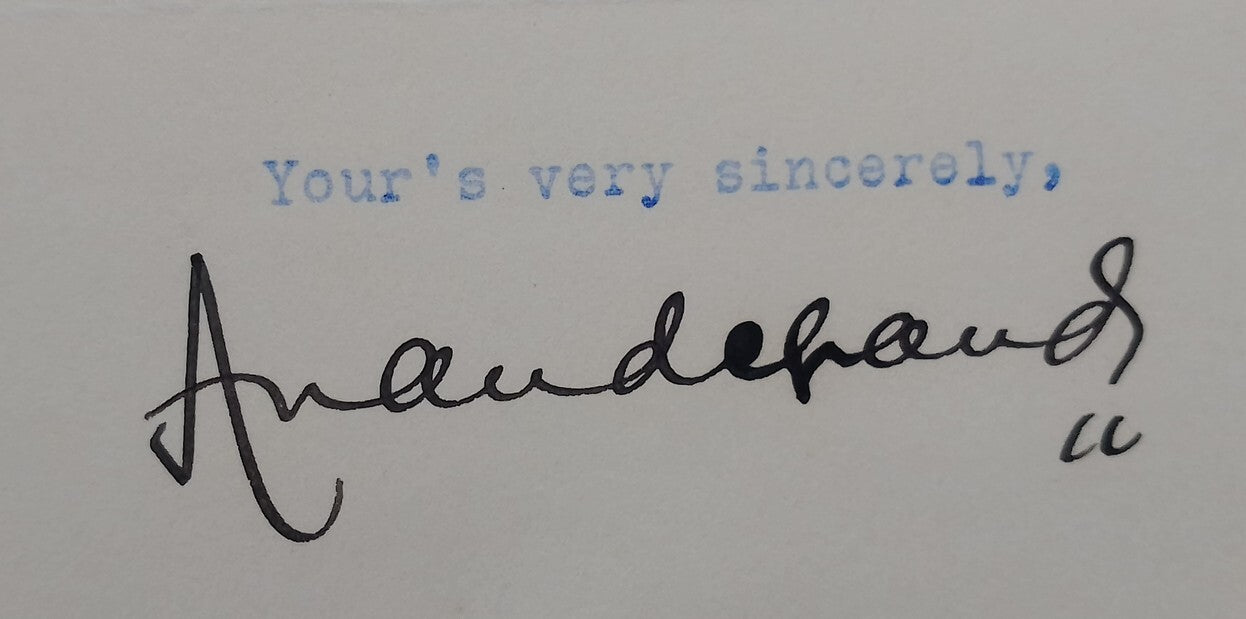 Your's very sincerely,
Anandchand